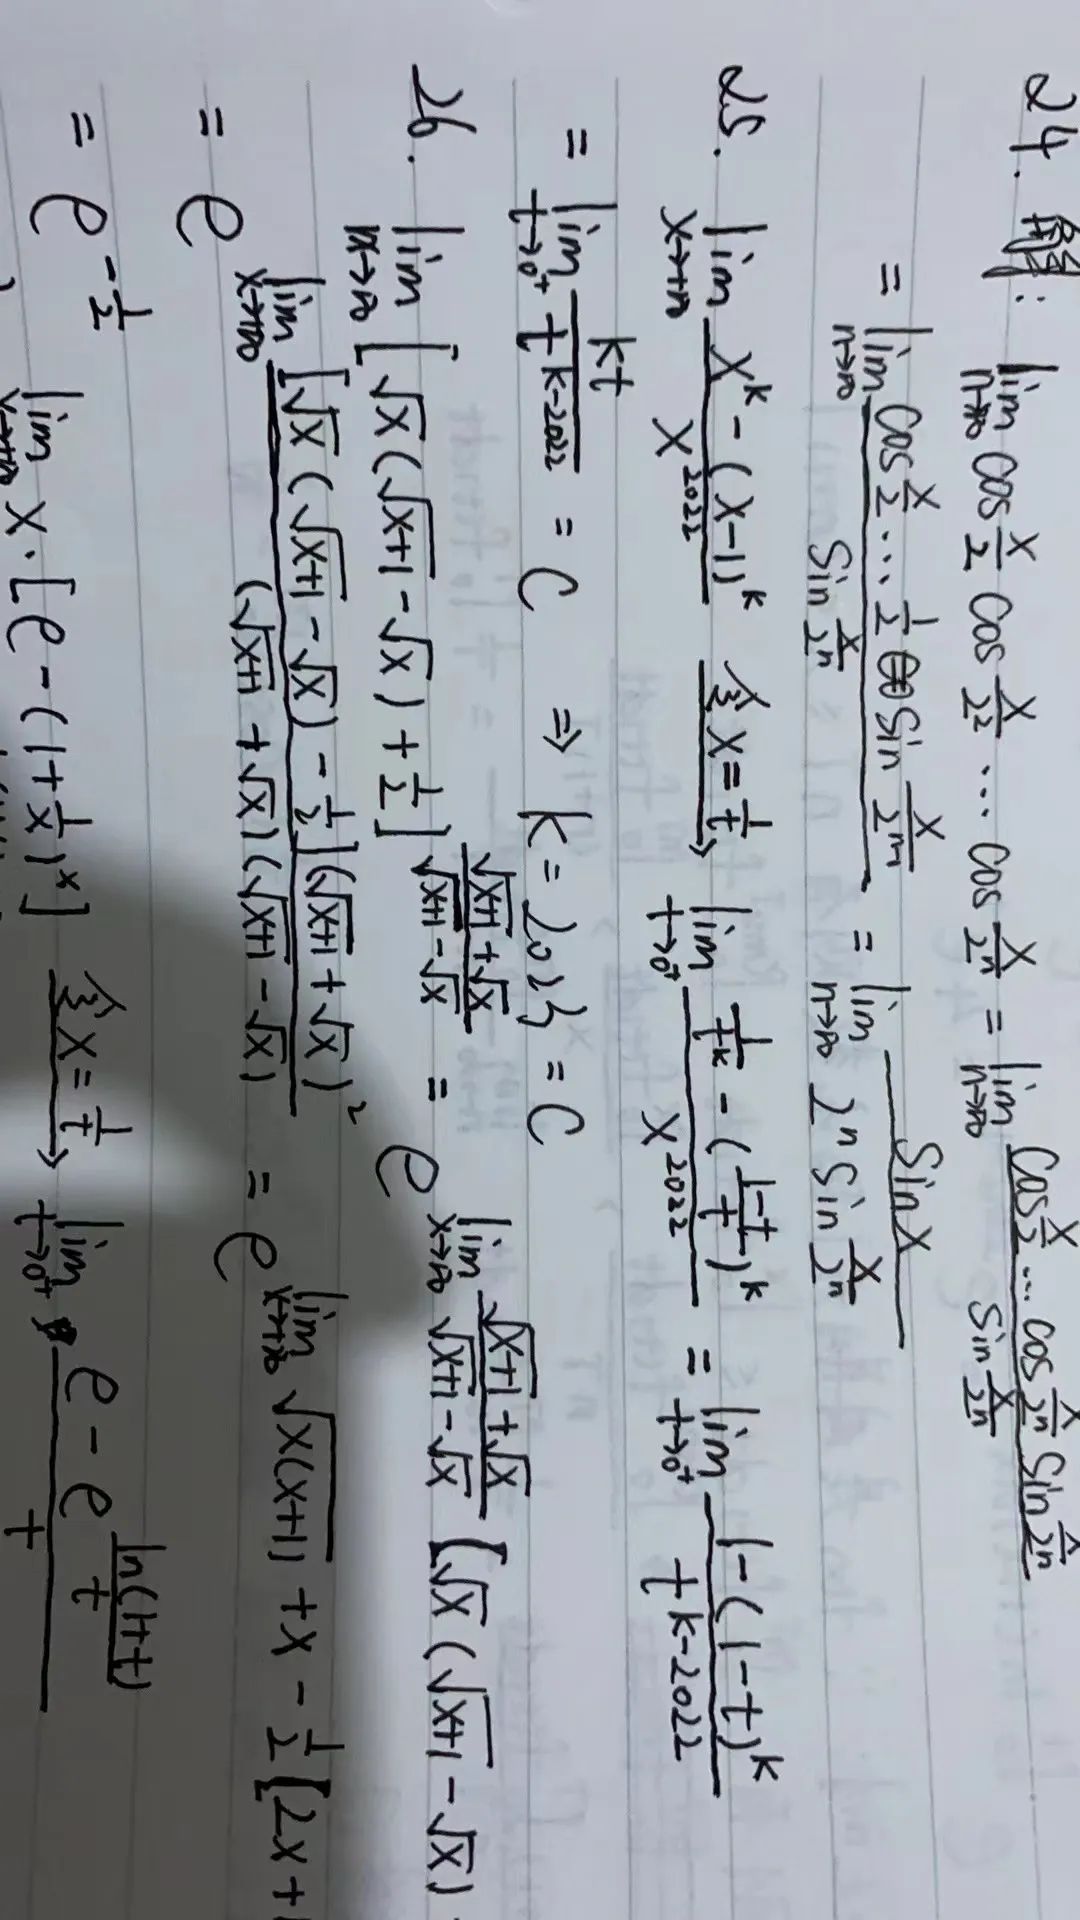 24. 解: lim_{n→∞} cos x/2 cos x/2² ... cos x/2ⁿ = lim_{n→∞} (cos x/2 ... cos x/2ⁿ sin x/2ⁿ)/(sin x/2ⁿ)
= lim_{n→∞} (cos x/2 ... 1/2 sin x/2ᵐ)/(sin x/2ⁿ) = lim_{n→∞} (sin x)/(2ⁿ sin x/2ⁿ)
25. lim_{x→+∞} (xᵏ - (x-1)ᵏ)/x²⁰²² 令x=1/t → lim_{t→0⁺} (1/tᵏ - ((1-t)/t)ᵏ)/x²⁰²² = lim_{t→0⁺} (1-(1-t)ᵏ)/t^{k-2022}
= lim_{t→0⁺} kt/t^{k-2022} = C ⇒ k = 2023 = C
26. lim_{x→∞} [√x (√(x+1) - √x) + 1/2]^{(√(x+1)+√x)/(√(x+1)-√x)} = e^{lim_{x→∞} (√(x+1)+√x)/(√(x+1)-√x) [√x (√(x+1) - √x)
= e^{lim_{x→+∞} [√x (√(x+1) - √x) - 1/2](√(x+1) + √x)²/((√(x+1) + √x)(√(x+1) - √x))} = e^{lim_{x→+∞} √(x(x+1)) + x - 1/2 [2x+1
= e^{-1/2}
lim_{x→+∞} x·[e - (1+1/x)ˣ] 令x=1/t → lim_{t→0⁺} (e - e^{ln(1+t)/t})/t